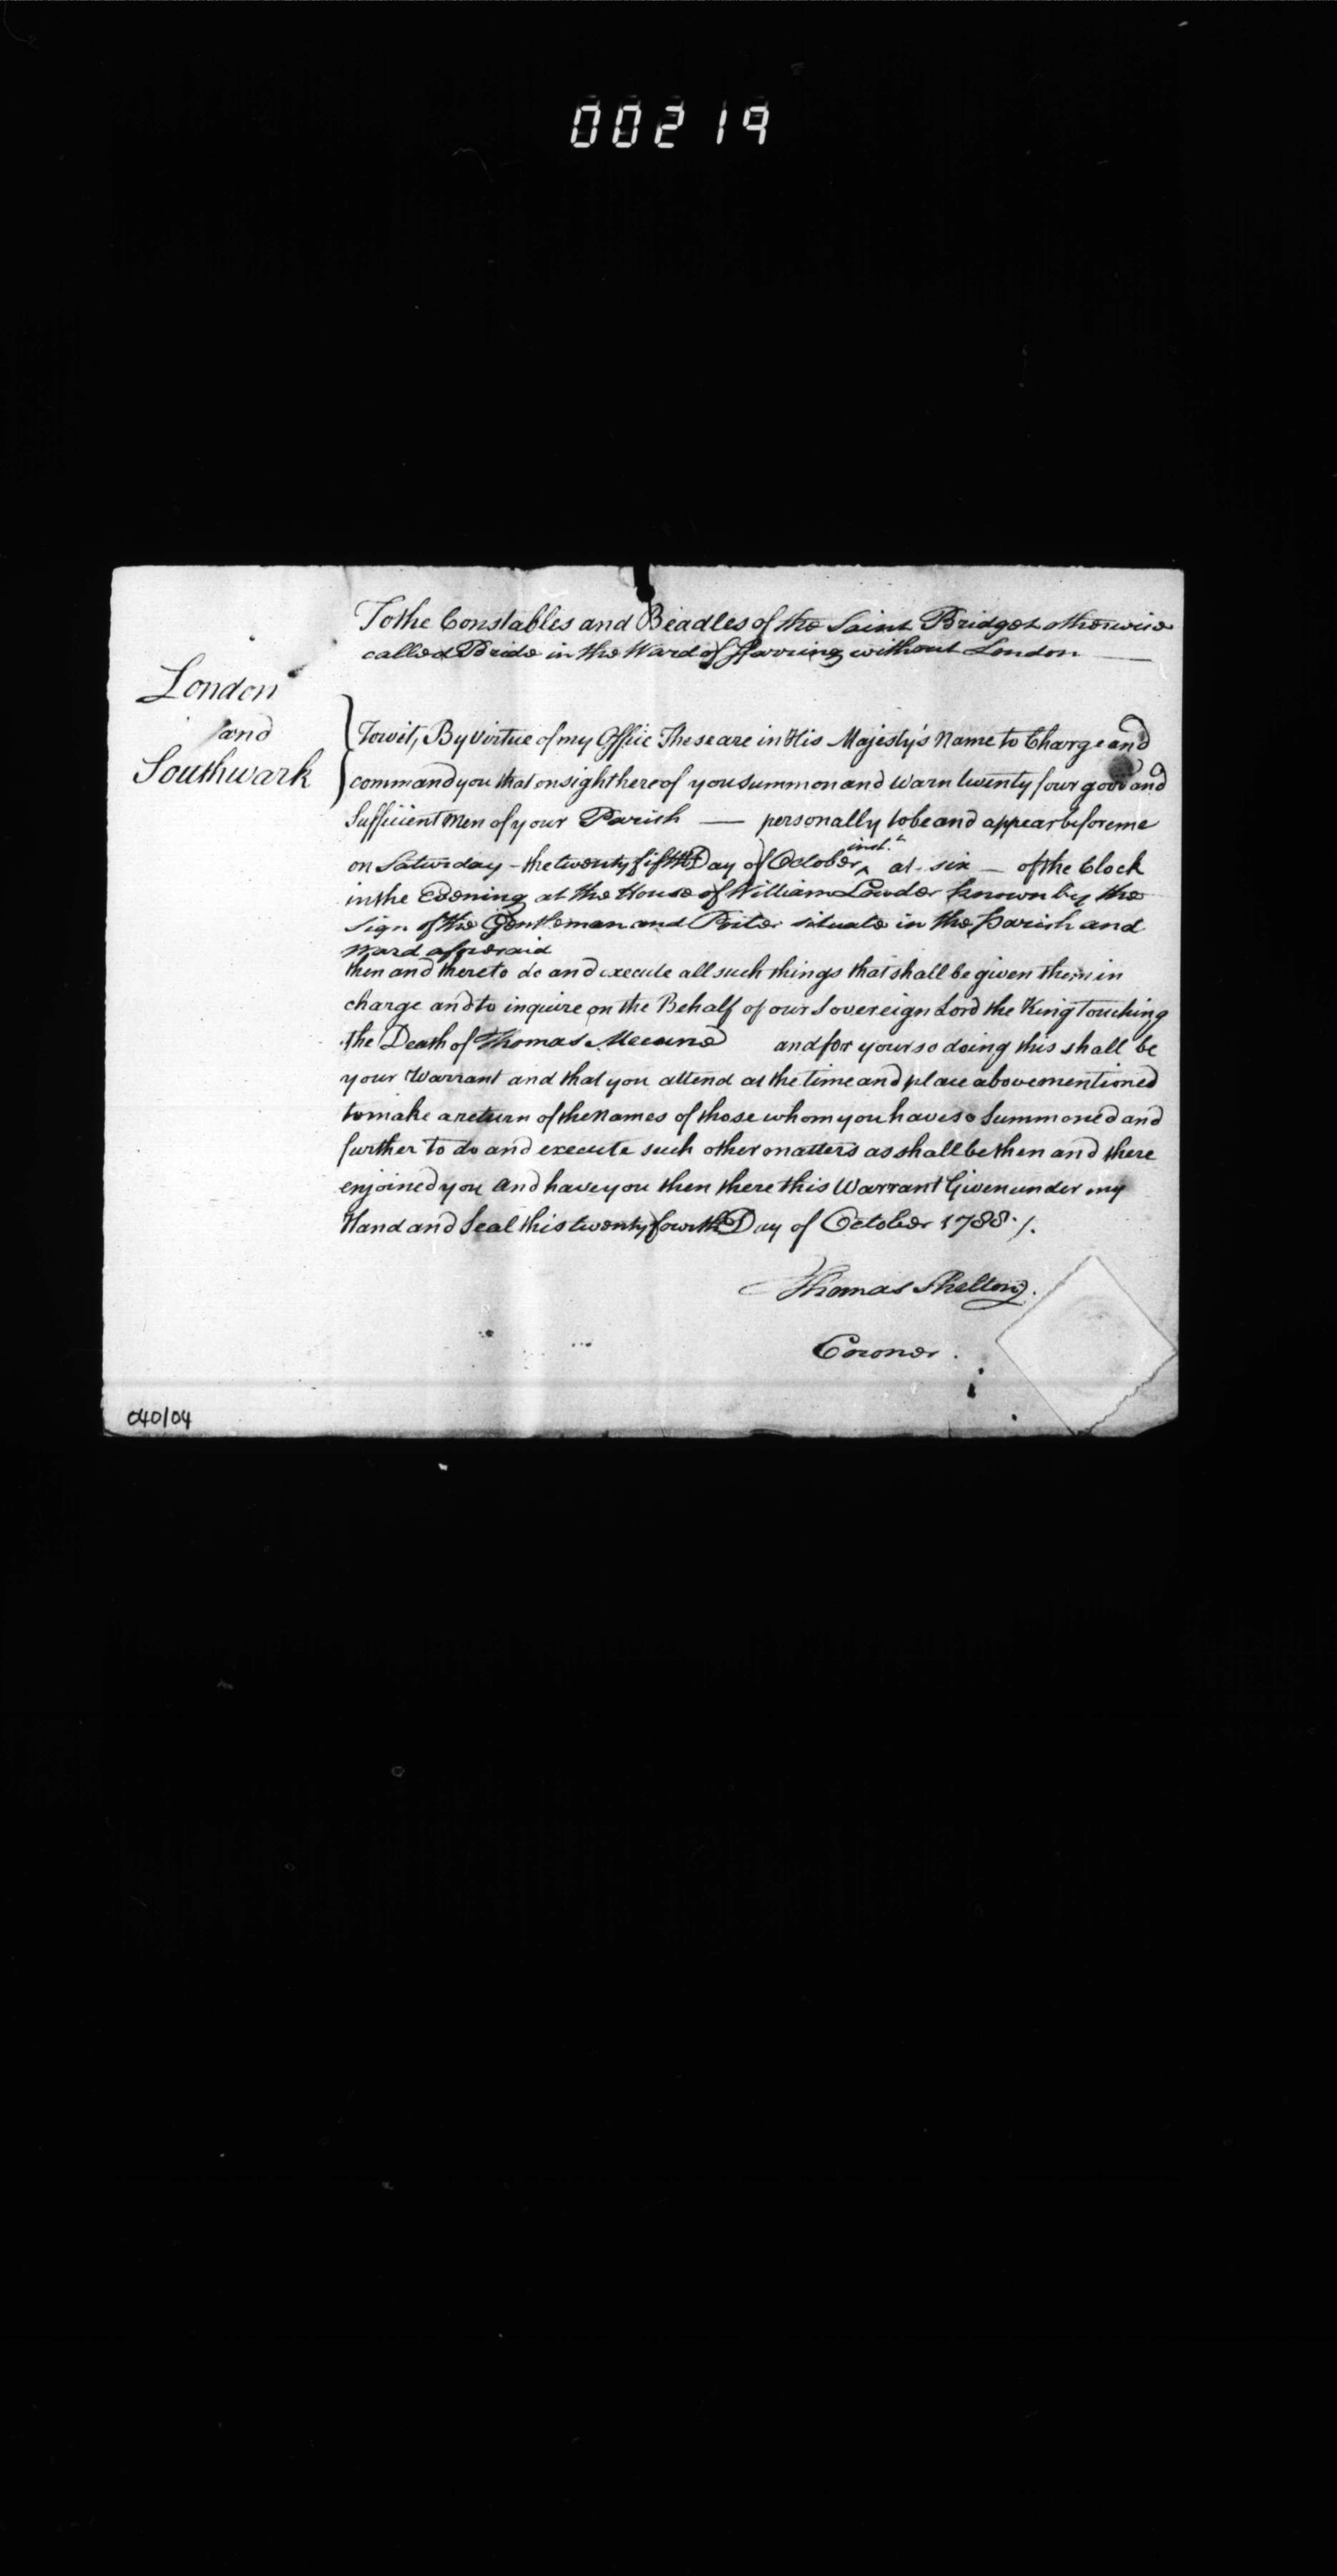 00219
To the Constables and Beadles of the Saint Bridget otherwise
called Bride in the Ward of Farring without London
London
and
Southwark
Towit, By virtue of my Office These are in His Majesty's Name to Charge and
command you that on sight hereof you summon and warn twenty four good and
Sufficient Men of your Parish — personally to be and appear before me
on Saturday - the twenty fifth Day of October inst. at six — of the Clock
in the Evening at the House of William Lowder known by the
sign of the Gentleman and Porter situate in the Parish and
Ward aforesaid
then and there to do and execute all such things that shall be given them in
charge and to inquire on the Behalf of our Sovereign Lord the King Touching
the Death of Thomas and for your so doing this shall be
your Warrant and that you attend at the time and place abovementioned
to make a return of the Names of those whom you have so Summoned and
further to do and execute such other matters as shall be then and there
enjoined you and have you then there this Warrant Given under my
Hand and Seal this twenty fourth Day of October 1788 ./.
Thomas Shelton
Coroner.
040/04